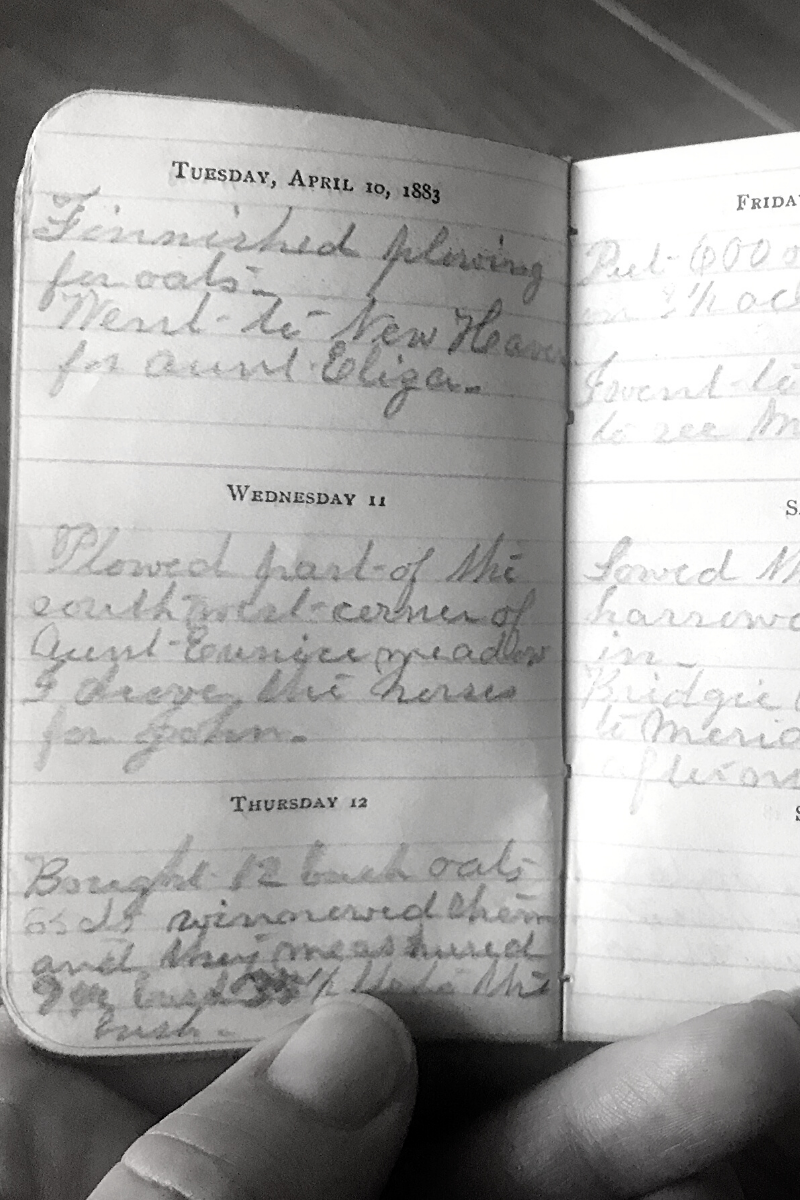 TUESDAY, APRIL 10, 1883
Finnished plowing
for oats-
Went to New Haven
for aunt Eliza-
WEDNESDAY 11
Plowed part of the
south west corner of
Aunt Eunice meadow
I drove the horses
for John-
THURSDAY 12
Bought 12 bush oats
65 cts winnowed them
and they meashured
bush the
bush-
FRIDA
Put 600
in
I went to
to see M
SA
Sowed th
harrowe
in-
Bridgie
to Merid
afternoo
S